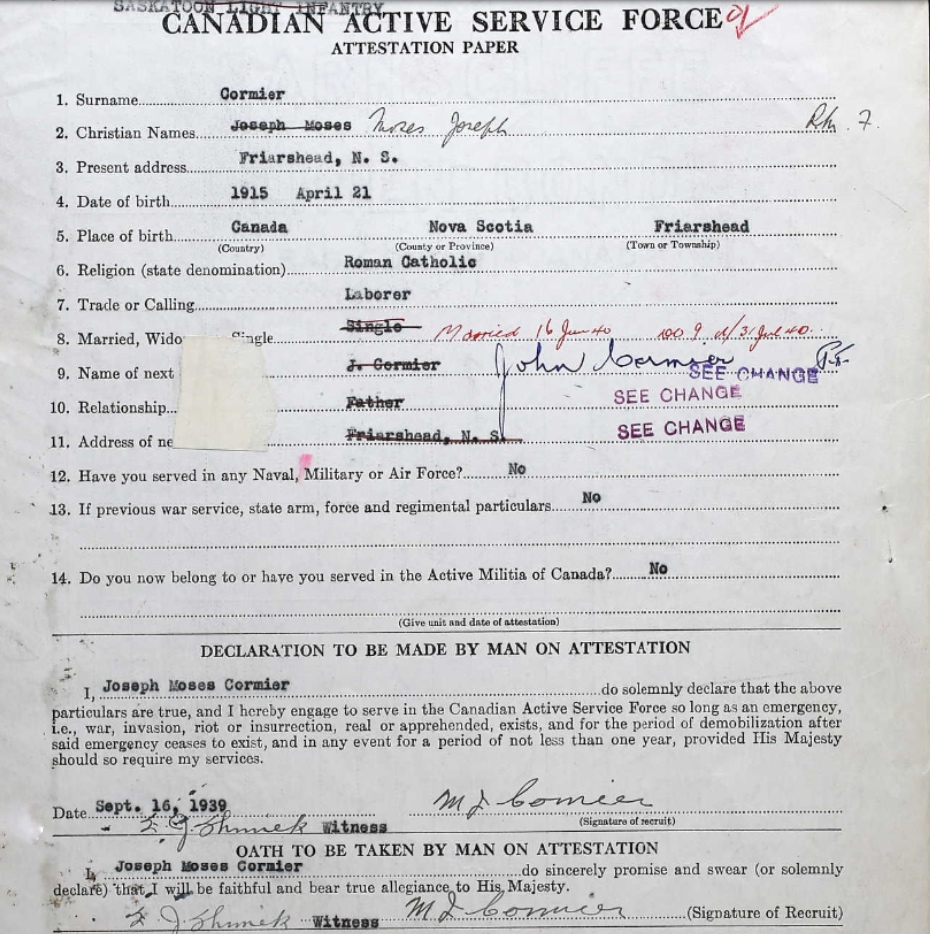 SASKATOON LIGHT INFANTRY
CANADIAN ACTIVE SERVICE FORCE
ATTESTATION PAPER
1. Surname Cormier
2. Christian Names Joseph Moses Moses Joseph 7.
3. Present address Friarshead, N. S.
4. Date of birth 1915 April 21
5. Place of birth Canada Nova Scotia Friarshead
(Country) (County or Province) (Town or Township)
6. Religion (state denomination) Roman Catholic
7. Trade or Calling Laborer
8. Married, Wido Single Single Married 16 Jun 40
9. Name of next J. Cormier John Cormier SEE CHANGE
10. Relationship Father SEE CHANGE
11. Address of ne Friarshead, N. S. SEE CHANGE
12. Have you served in any Naval, Military or Air Force? No
13. If previous war service, state arm, force and regimental particulars No
14. Do you now belong to or have you served in the Active Militia of Canada? No
(Give unit and date of attestation)
DECLARATION TO BE MADE BY MAN ON ATTESTATION
I, Joseph Moses Cormier do solemnly declare that the above
particulars are true, and I hereby engage to serve in the Canadian Active Service Force so long as an emergency,
i.e., war, invasion, riot or insurrection, real or apprehended, exists, and for the period of demobilization after
said emergency ceases to exist, and in any event for a period of not less than one year, provided His Majesty
should so require my services.
Date Sept. 16, 1939 M J Cormier
Witness (Signature of recruit)
OATH TO BE TAKEN BY MAN ON ATTESTATION
I, Joseph Moses Cormier do sincerely promise and swear (or solemnly
declare) that I will be faithful and bear true allegiance to His Majesty.
Witness M J Cormier (Signature of Recruit)